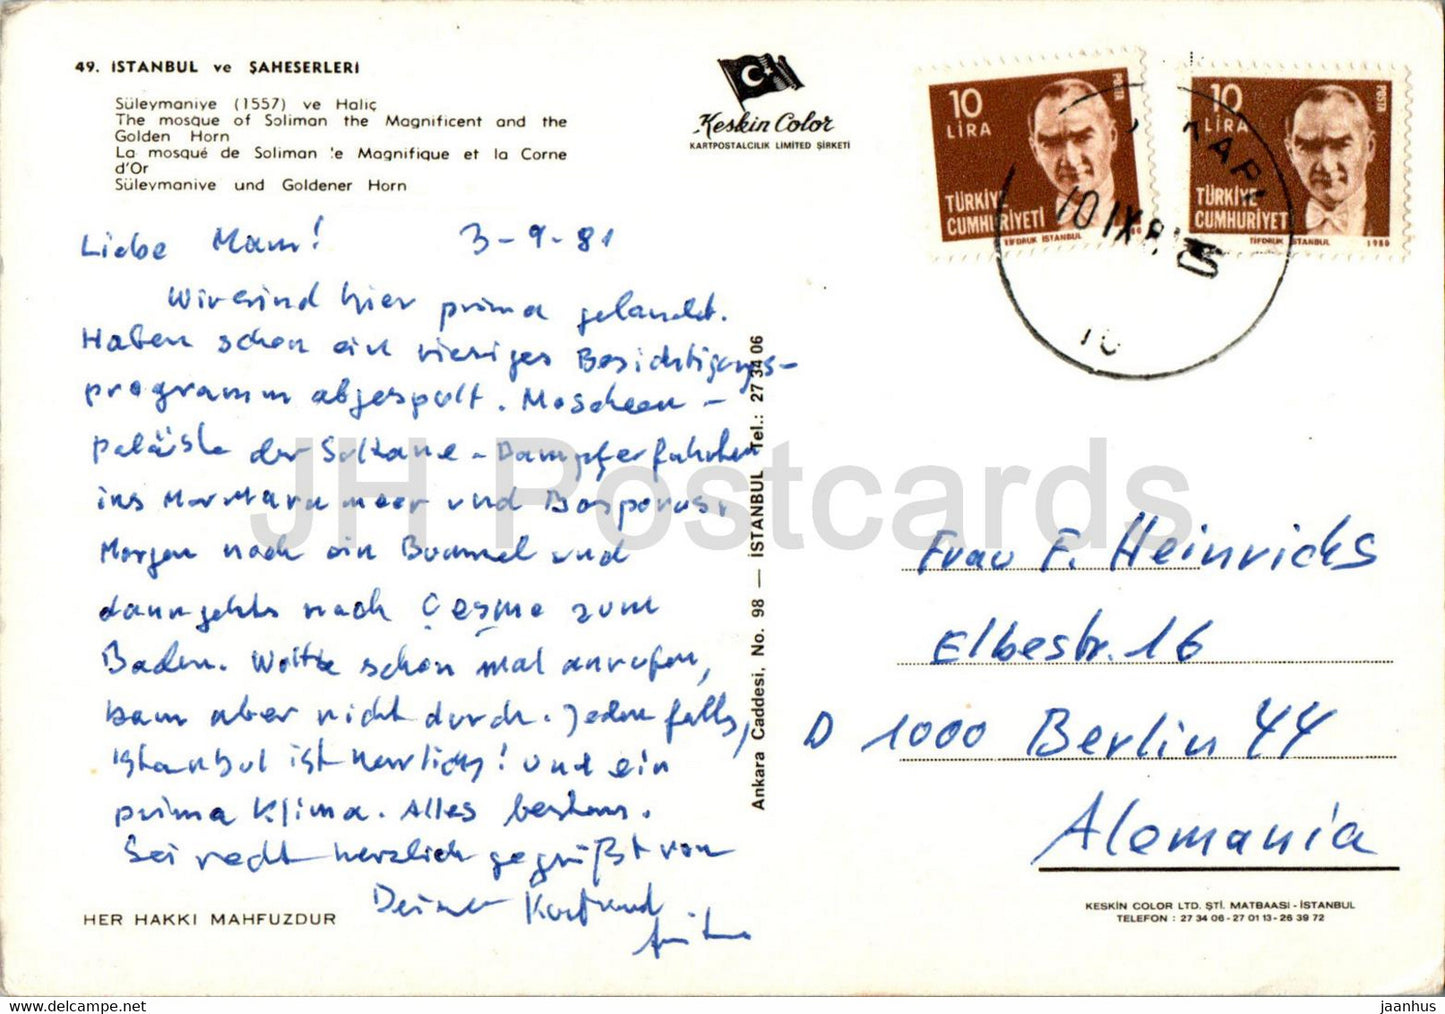 49. İSTANBUL ve ŞAHESERLERİ
Süleymaniye (1557) ve Haliç
The mosque of Soliman the Magnificent and the
Golden Horn
La mosqué de Soliman le Magnifique et la Corne
d'Or
Süleymaniye und Goldener Horn
Keskin Color
KARTPOSTALCILIK LIMITED ŞİRKETİ
10
LİRA
POSTA
TÜRKİYE
CUMHURİYETİ
TİFDRUK İSTANBUL
10
LİRA
POSTA
TÜRKİYE
CUMHURİYETİ
TİFDRUK İSTANBUL 1980
10 IX 81
10
Liebe Mam! 3-9-81
Wir sind hier prima gelandet.
Haben schon ein riesiges Besichtigungs-
programm abgespult. Moscheen -
paläste der Sultane - Dampferfahrten
ins Marmarameer und Bosporus.
Morgen noch ein Bummel und
dann gehts nach Çeşme zum
Baden. Wollte schon mal anrufen,
kam aber nicht durch. Jedenfalls,
Istanbul ist herrlich! Und ein
prima Klima. Alles bestens.
Sei recht herzlich gegrüßt von
Deinen
Ankara Caddesi, No. 98 — İSTANBUL Tel.: 27 34 06
Frau F. Heinrichs
Elbestr. 16
D 1000 Berlin 44
Alemania
HER HAKKI MAHFUZDUR
KESKIN COLOR LTD. ŞTİ. MATBAASI - İSTANBUL
TELEFON : 27 34 06 - 27 01 13 - 26 39 72
JH Postcards
www.delcampe.net
jaanhus